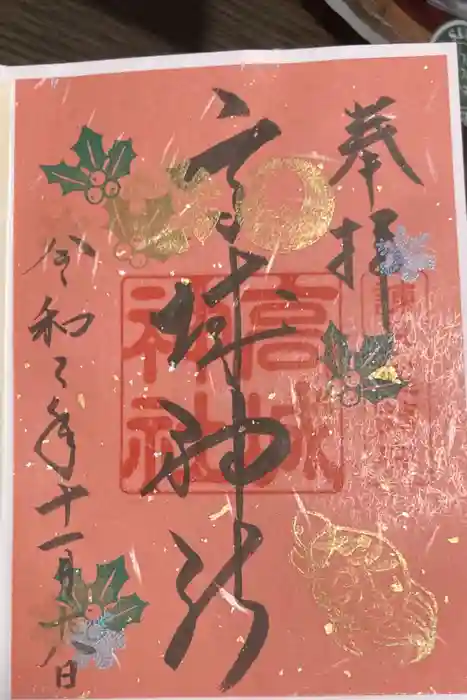 奉拝
高城神社
高城
神社
令和二年十一月十八日